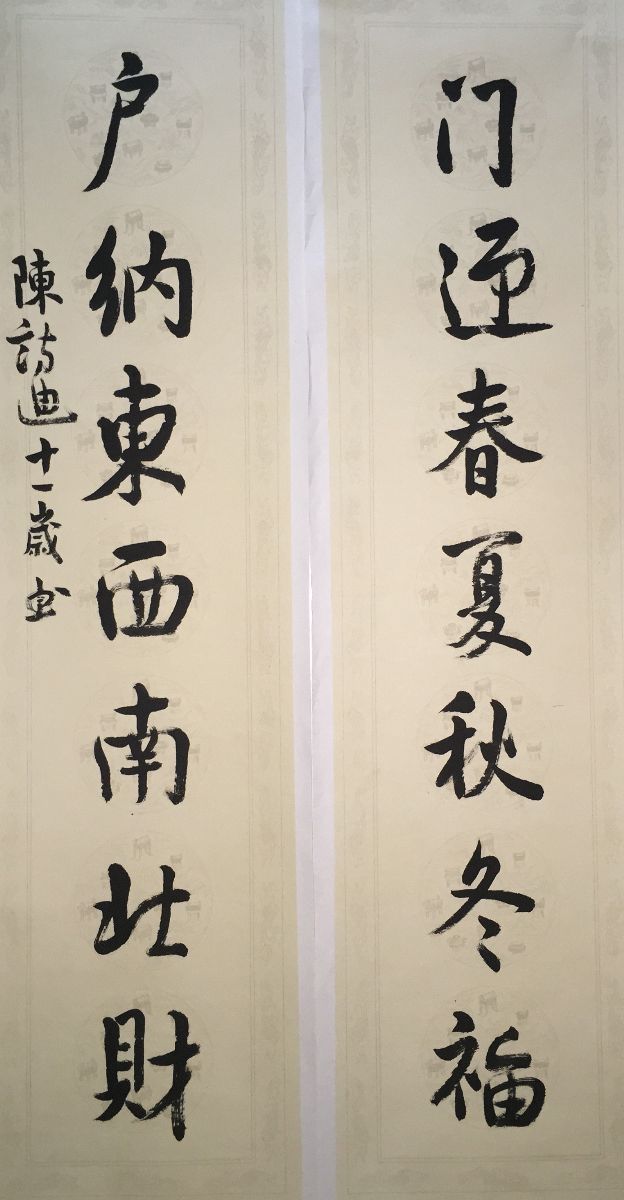 门迎春夏秋冬福
户纳東西南北財
陳詩迪十一歲书